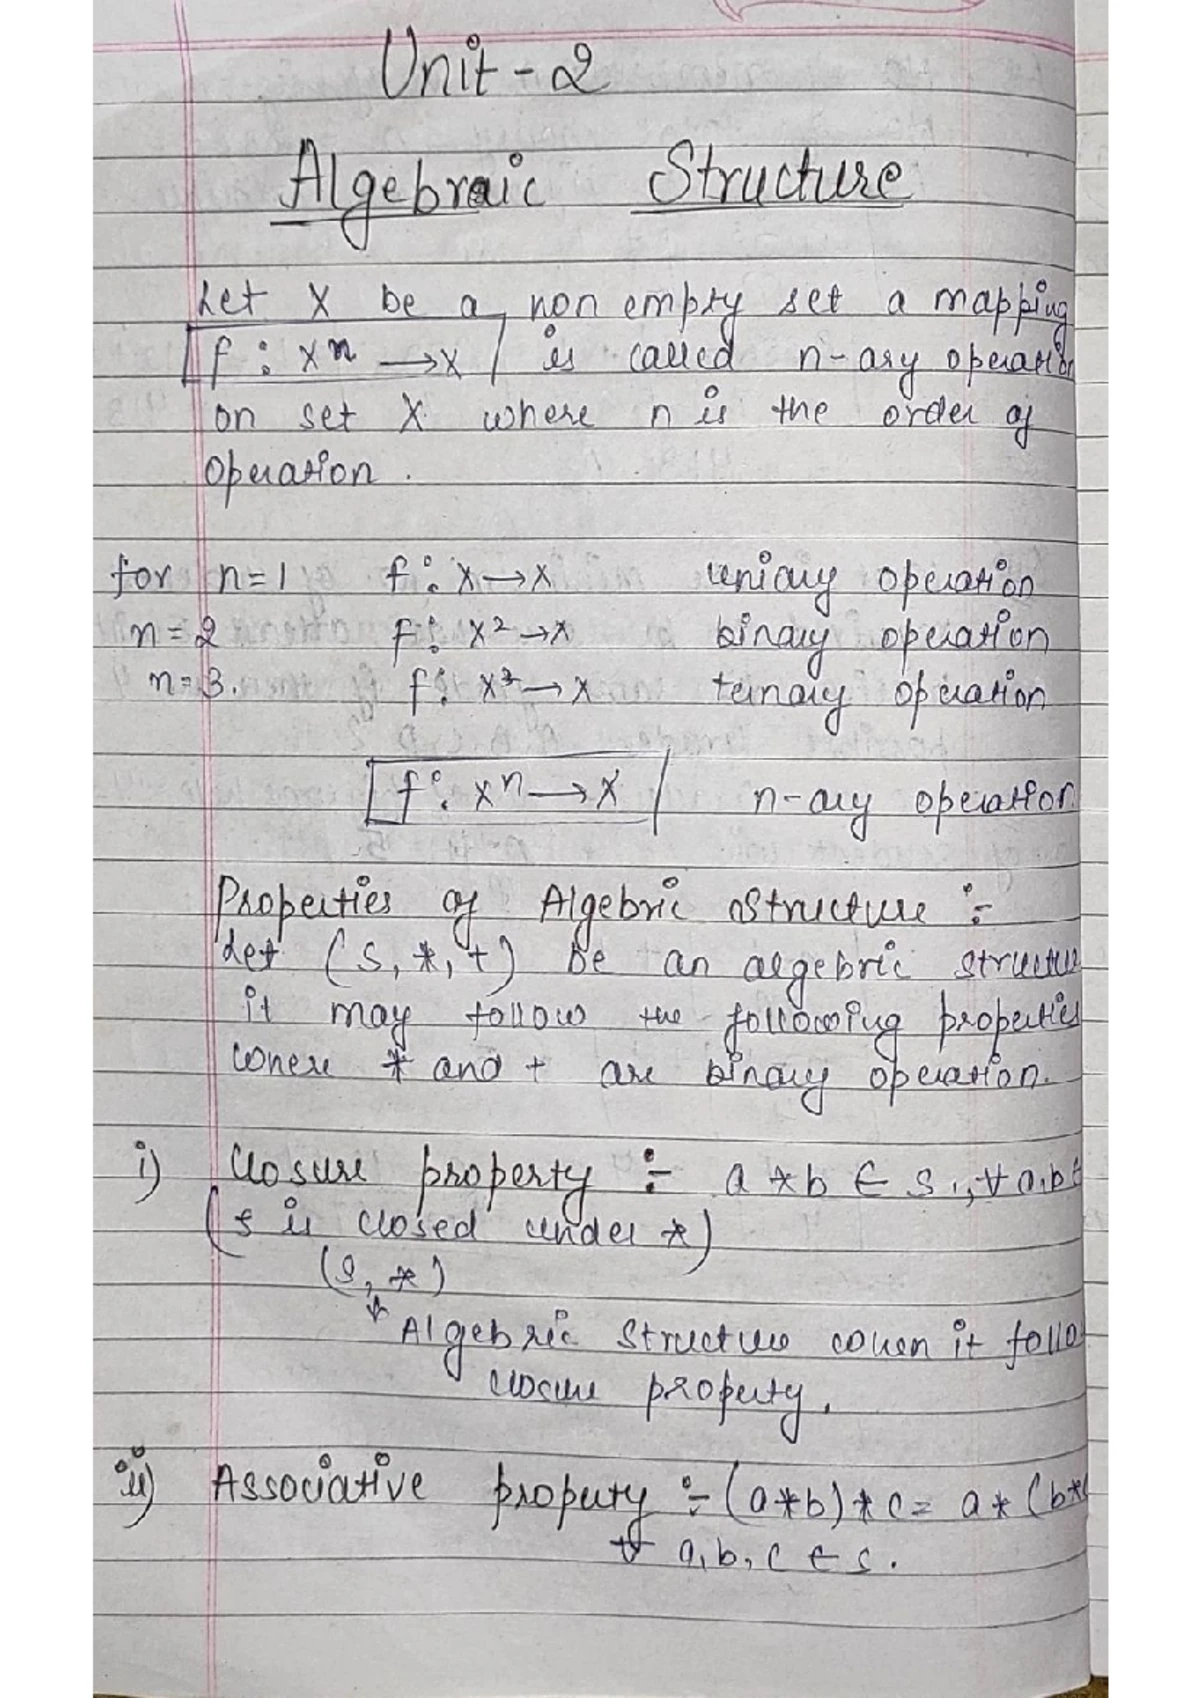 Unit - 2
Algebraic Structure
Let X be a non empty set a mapping
f : Xⁿ → X is called n-ary operation
on set X where n is the order of
operation.
for n=1 f : X → X uniary operation
n=2 f : X² → X binary operation
n=3. f : X³ → X ternary operation
f : Xⁿ → X n-ary operation
Properties of Algebric Structure :-
Let (S, *, +) be an algebric structure
it may follow the following properties
where * and + are binary operation.
i) Closure property :- a * b ∈ S, ∀ a,b ∈
(S is closed under *)
(S, *)
↓ Algebric Structure when it follo
closure property.
ii) Associative property :- (a*b)*c = a*(b*c
∀ a,b,c ∈ S.